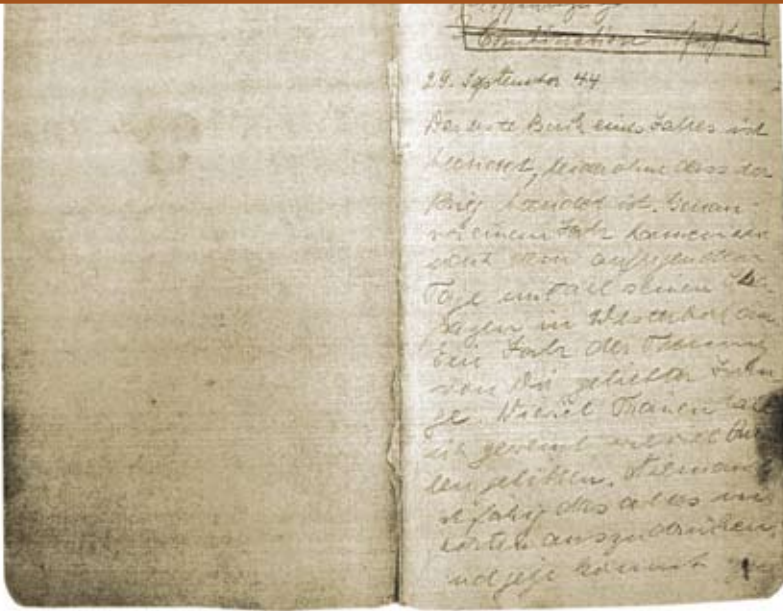 Combination
29. September 44
Das erste Buch eines Jahres ist
beendet, leider ohne dass der
Krieg beendet ist. Genau
vor einem Jahr kamen wir
nach dem aufregenden
Tage mit all seinen
in Westerbork an
Ein Jahr der Trennung
von Dir geliebter Jun
ge. Wieviel Tränen habe
ich geweint wieviel
len gelitten. Niemand
ist fähig das alles in
Worten auszudrücken
und jetzt kommt